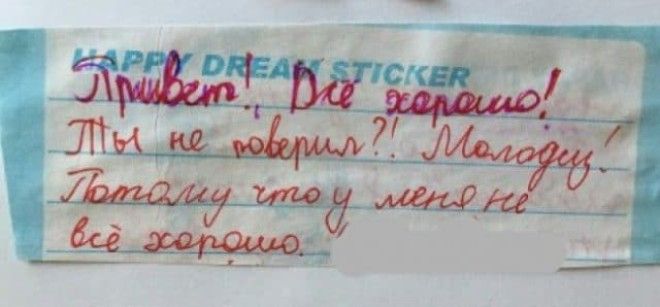 HAPPY DREAM STICKER
Привет! Всё хорошо!
Ты не поверил?! Молодец!
Потому что у меня не
всё хорошо.